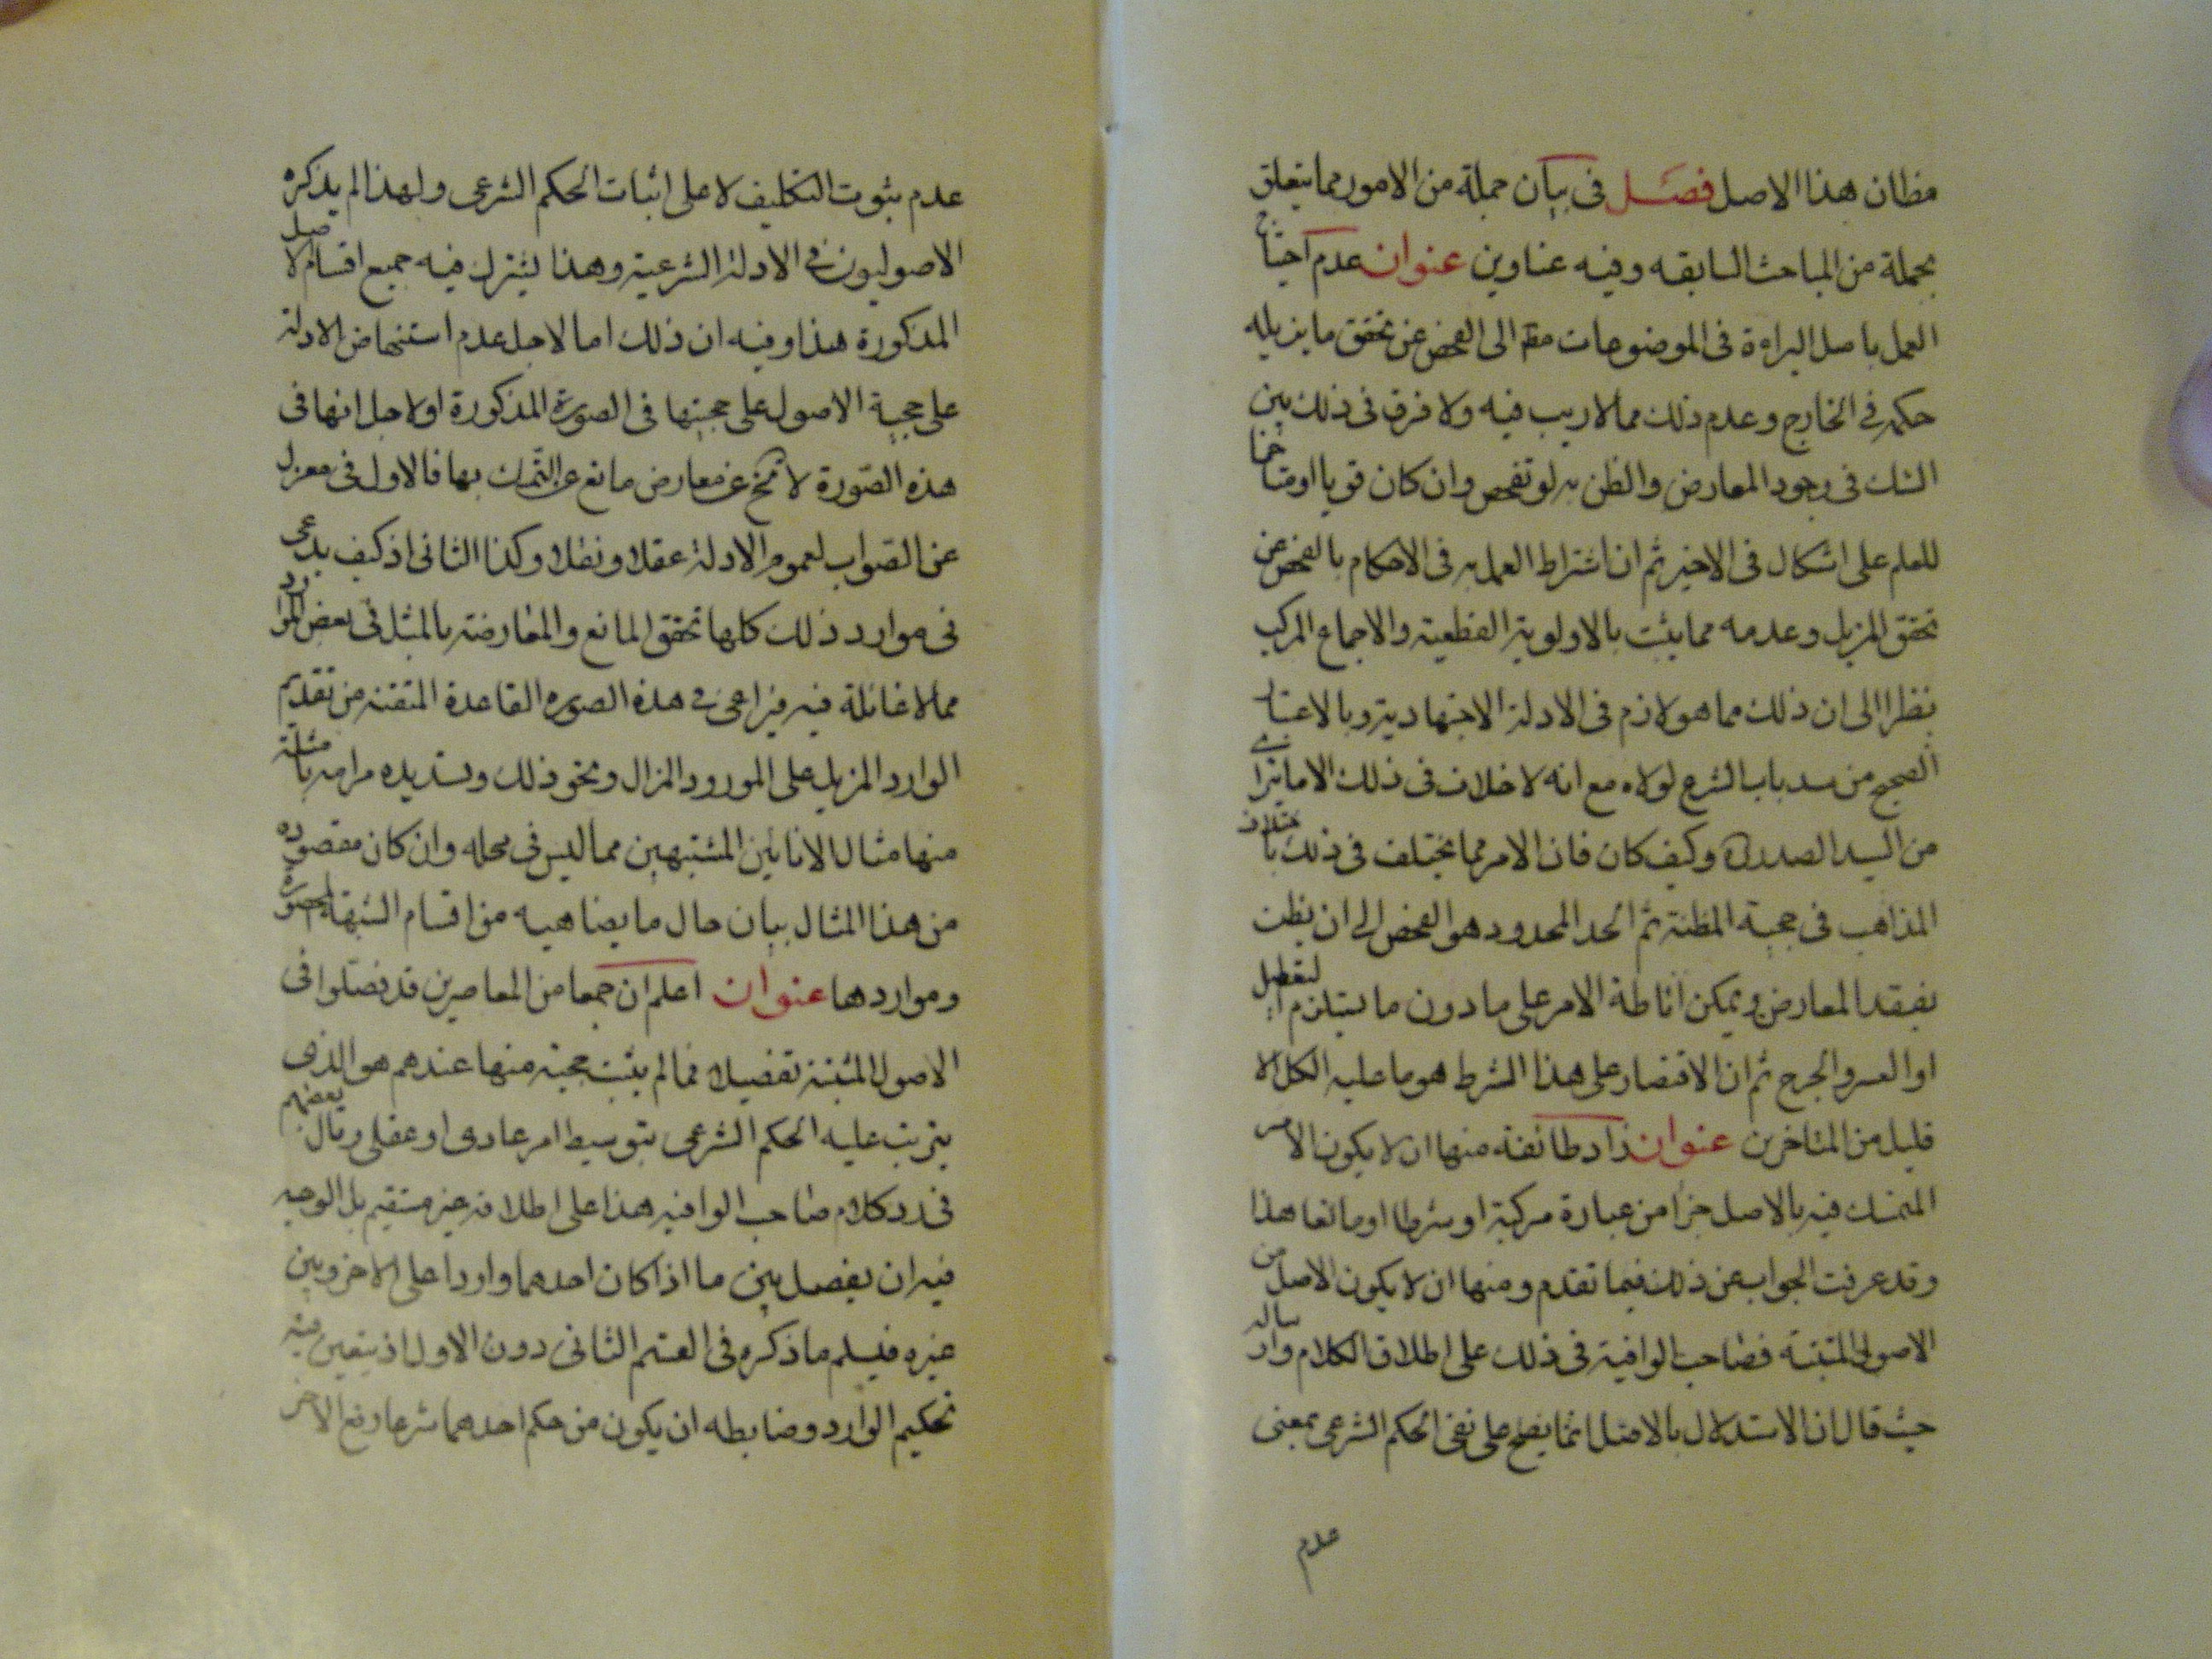 مظان هذا الاصل فصل فى بيان جملة من الامور مما يتعلق
بجملة من المباحث السابقه وفيه عناوين عنوان عدم احتياج
العمل باصل البراءة فى الموضوعات مقم الى الفحص عن تحقق ما يزيله
حكمه فى الخارج وعدم ذلك مما لا ريب فيه ولا فرق فى ذلك بين
الشك فى وجود المعارض والظن به لو تفحص وان كان قويا او متاخما
للعلم على اشكال فى الاخير ثم ان اشتراط العمل به فى الاحكام بالفحص عن
تحقق المزيل وعدمه مما يثبت بالاولوية القطعية والاجماع المركب
نظرا الى ان ذلك مما هو لازم فى الادلة الاجتهادية وبالاعتبار
الصحيح من سد باب الشرع لولاه مع انه لا خلاف فى ذلك الا ما يترائى
من السيد الصدر وكيف كان فان الامر مما يختلف فى ذلك باختلاف
المذاهب فى حجية المظنة ثم الحد المحدود هو الفحص الى ان يظن
بفقد المعارض ويمكن اناطة الامر على ما دون ما يستلزم التعطيل
او العسر والحرج ثم ان الاقتصار على هذا الشرط هو ما عليه الكل الا
قليل من المتاخرين عنوان زاد طائفة منها ان لا يكون الامر
المتمسك فيه بالاصل جزأ من عبارة مركبة او شرطا او مانعا هذا
وقد عرفت الجواب عن ذلك فيما تقدم ومنها ان لا يكون الاصل من
الاصول المثبتة فصاحب الوافية فى ذلك على اطلاق الكلام وارساله
حيث قال ان الاستدلال بالاصل انما يصلح على نفى الحكم الشرعى بمعنى
عدم
عدم ثبوت التكليف لا على اثبات الحكم الشرعى ولهذا لم يذكره
الاصوليون فى الادلة الشرعية وهذا يشترك فيه جميع اقسام الاصل
المذكورة هذا وفيه ان ذلك اما لاجل عدم استنهاض الادلة
على حجية الاصول على حجيتها فى الصورة المذكورة او لاجل انها فى
هذه الصورة لا تخ عن معارض مانع عن التمسك بها فالاول فى معزل
عن الصواب لعموم الادلة عقلا ونقلا وكذا الثانى اذ كيف يدعى
فى موارد ذلك كلها تحقق المانع والمعارضة بالمثل فى بعض الموارد
مما لا غائلة فيه فيراعى فى هذه الصوره القاعدة المتقنة من تقديم
الوارد المزيل على المورود المزال ونحو ذلك وتسديده مرامه بامثلة
منها مثال الانائين المشتبهين مما ليس فى محله وان كان مقصوده
من هذا المثال بيان حال ما يضاهيه من اقسام الشبهة المحصورة
ومواردها عنوان اعلم ان جمعا من المعاصرين قد فصلوا فى
الاصول المثبتة تفصيلا فما لم يثبت حجية منها عندهم هو الذى
يترتب عليه الحكم الشرعى بتوسيط امر عادى او عقلى وقال بعضهم
فى رد كلام صاحب الوافيه هذا على اطلاقه غير مستقيم بل الوجه
فيه ان يفصل بين ما اذا كان احدهما واردا على الاخر وبين
غيره فيسلم ما ذكره فى القسم الثانى دون الاول اذ يتعين فيه
تحكيم الوارد وضابطه ان يكون من حكم احدهما شرعا رفع الاخر